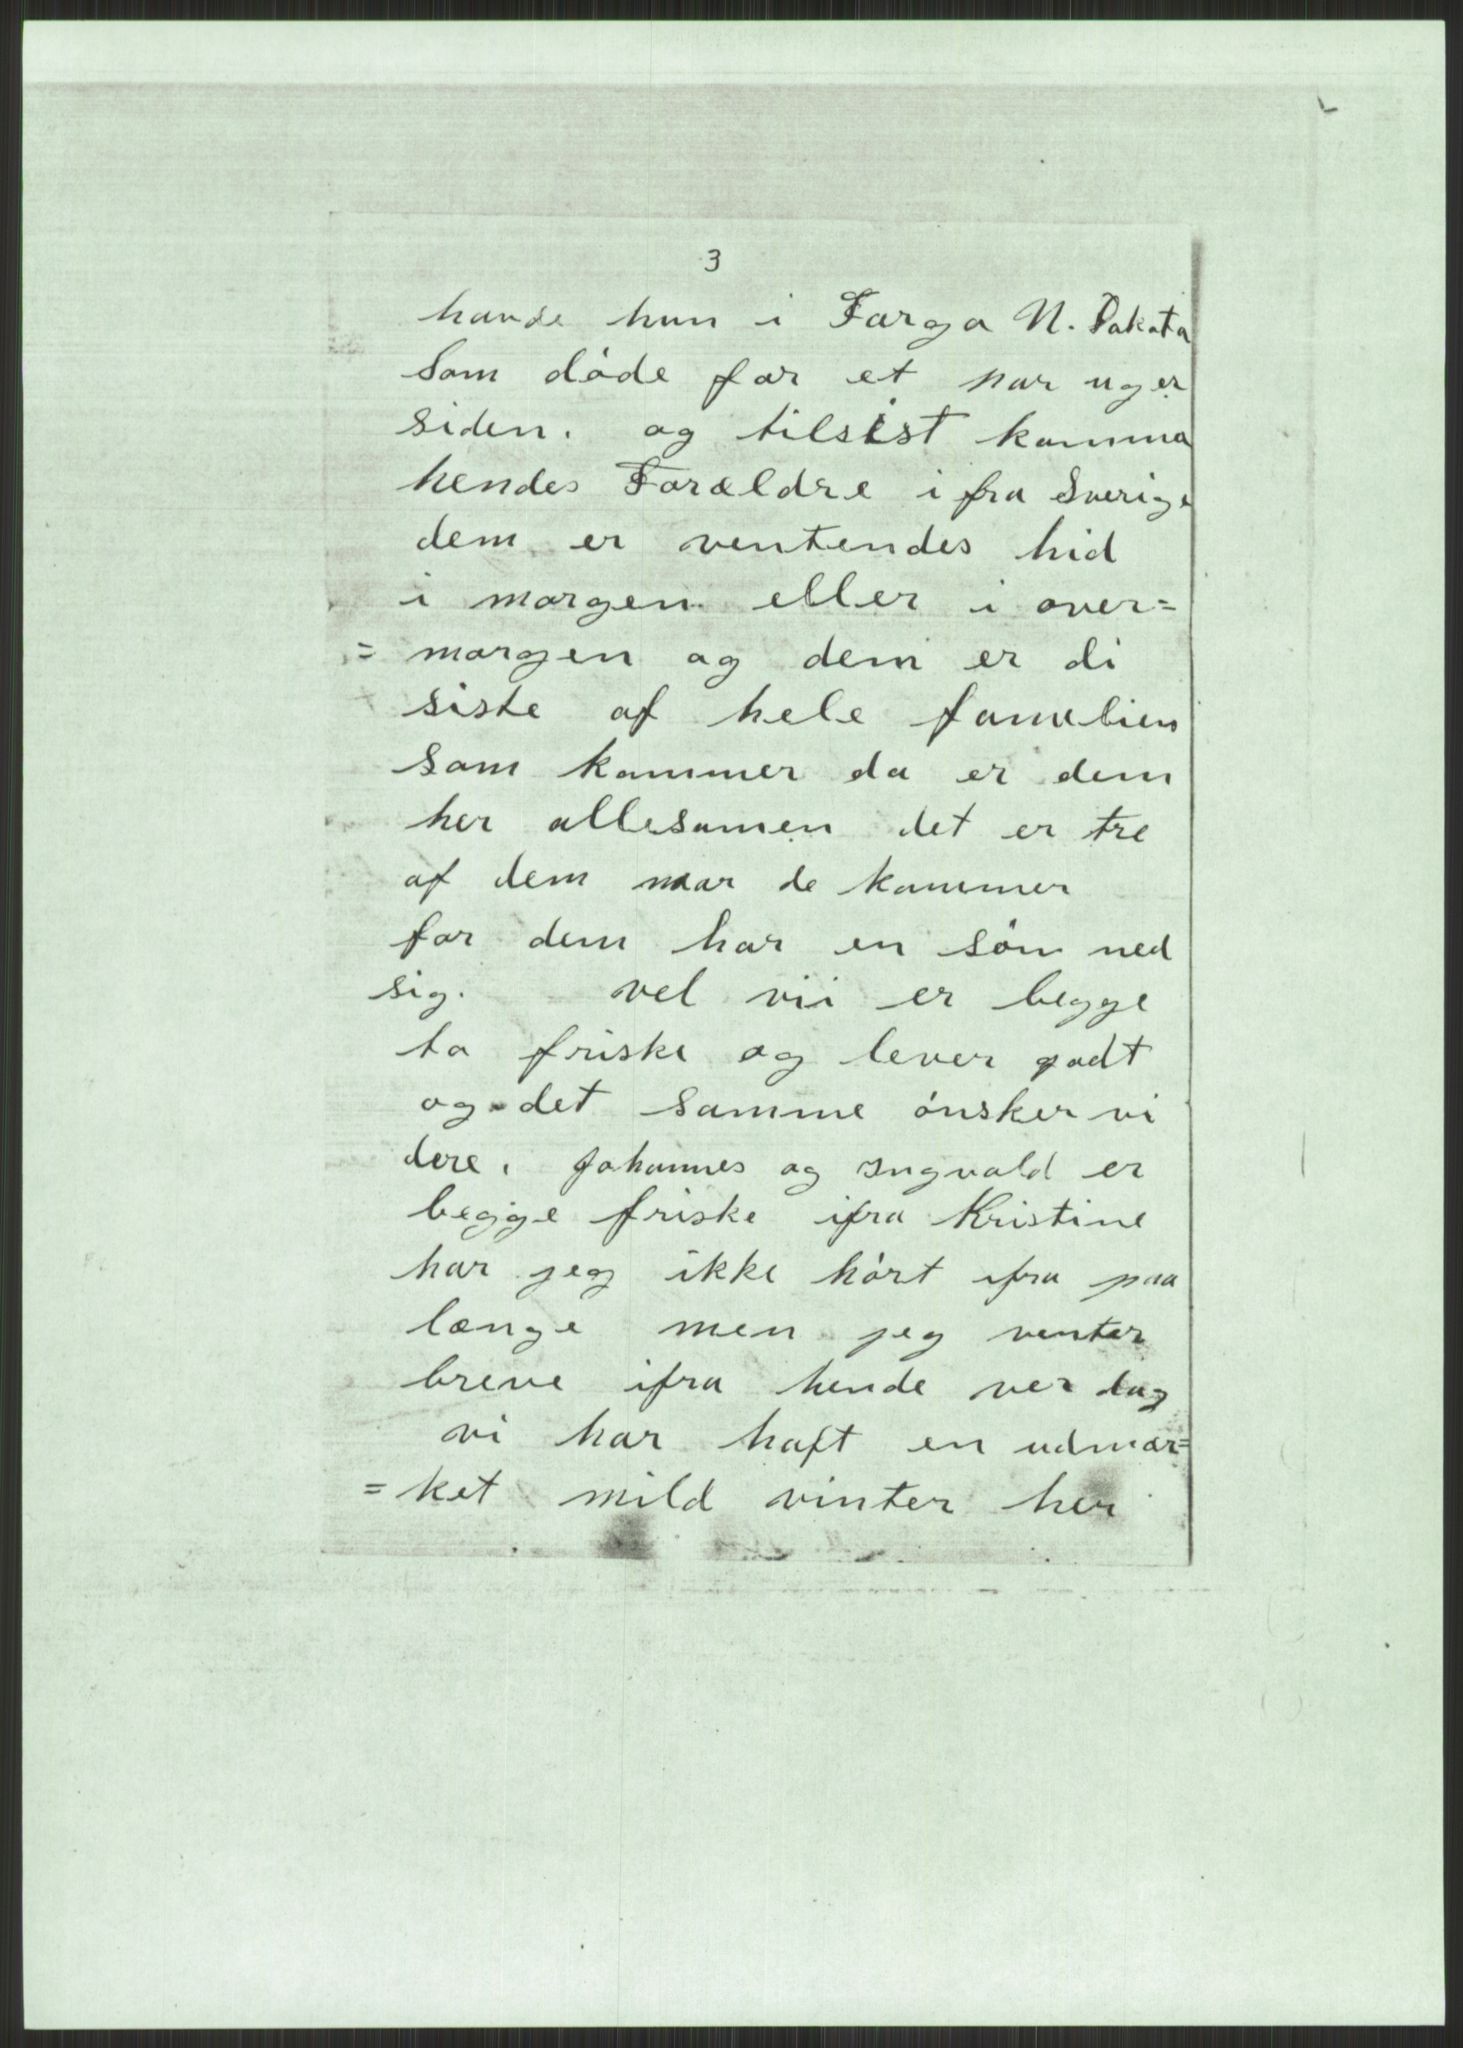 3
havde hun i Fargo N. Dakota
som døde for et par uger
siden. og tilsist komma
hendes Forældre i fra Sverige
dem er ventendes hid
i morgen eller i over=
= morgen og dem er di
siste af hele famelien
som kommer da er dem
her allesamen det er tre
af dem naar de kommer
for dem har en søn med
sig. vel vii er begge
to friske og lever godt
og det samme ønsker vi
dere. Johannes og Ingvald er
begge friske ifra Kristine
har jeg ikke hørt ifra paa
længe men jeg venter
breve ifra hende ver dag
vi har haft en udmær=
= ket mild vinter her